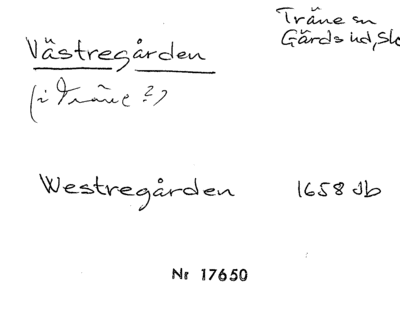 Västregården
Träne sn
Gärds hd, Sk
(i Träne?)
Westregården 1658 Jb
Nr 17650